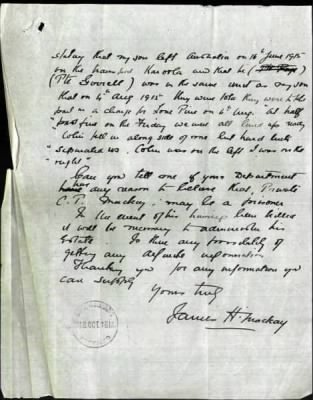 stating that my son left Australia on 16th June 1915
on the transport Karoola and that he
(Pte Govrell) was in the same unit as my son
that on 4th Aug 1915 they were told they were to take
part in a charge for Lone Pine on 6th Aug. at half
"past five on the Friday we were all lined up ready
Colin fell in along side of me but hard luck
"separated us. Colin was on the left I was on the
right"
Can you tell one of your Department
has any reason to believe that, Private
C. T. Mackay. may be a prisoner
In the event of his having been killed
it will be necessary to administer his
Estate. Is there any possibility of
getting any definite information
Thanking you for any information you
can supply
Yours truly
James H. Mackay
OCT 191